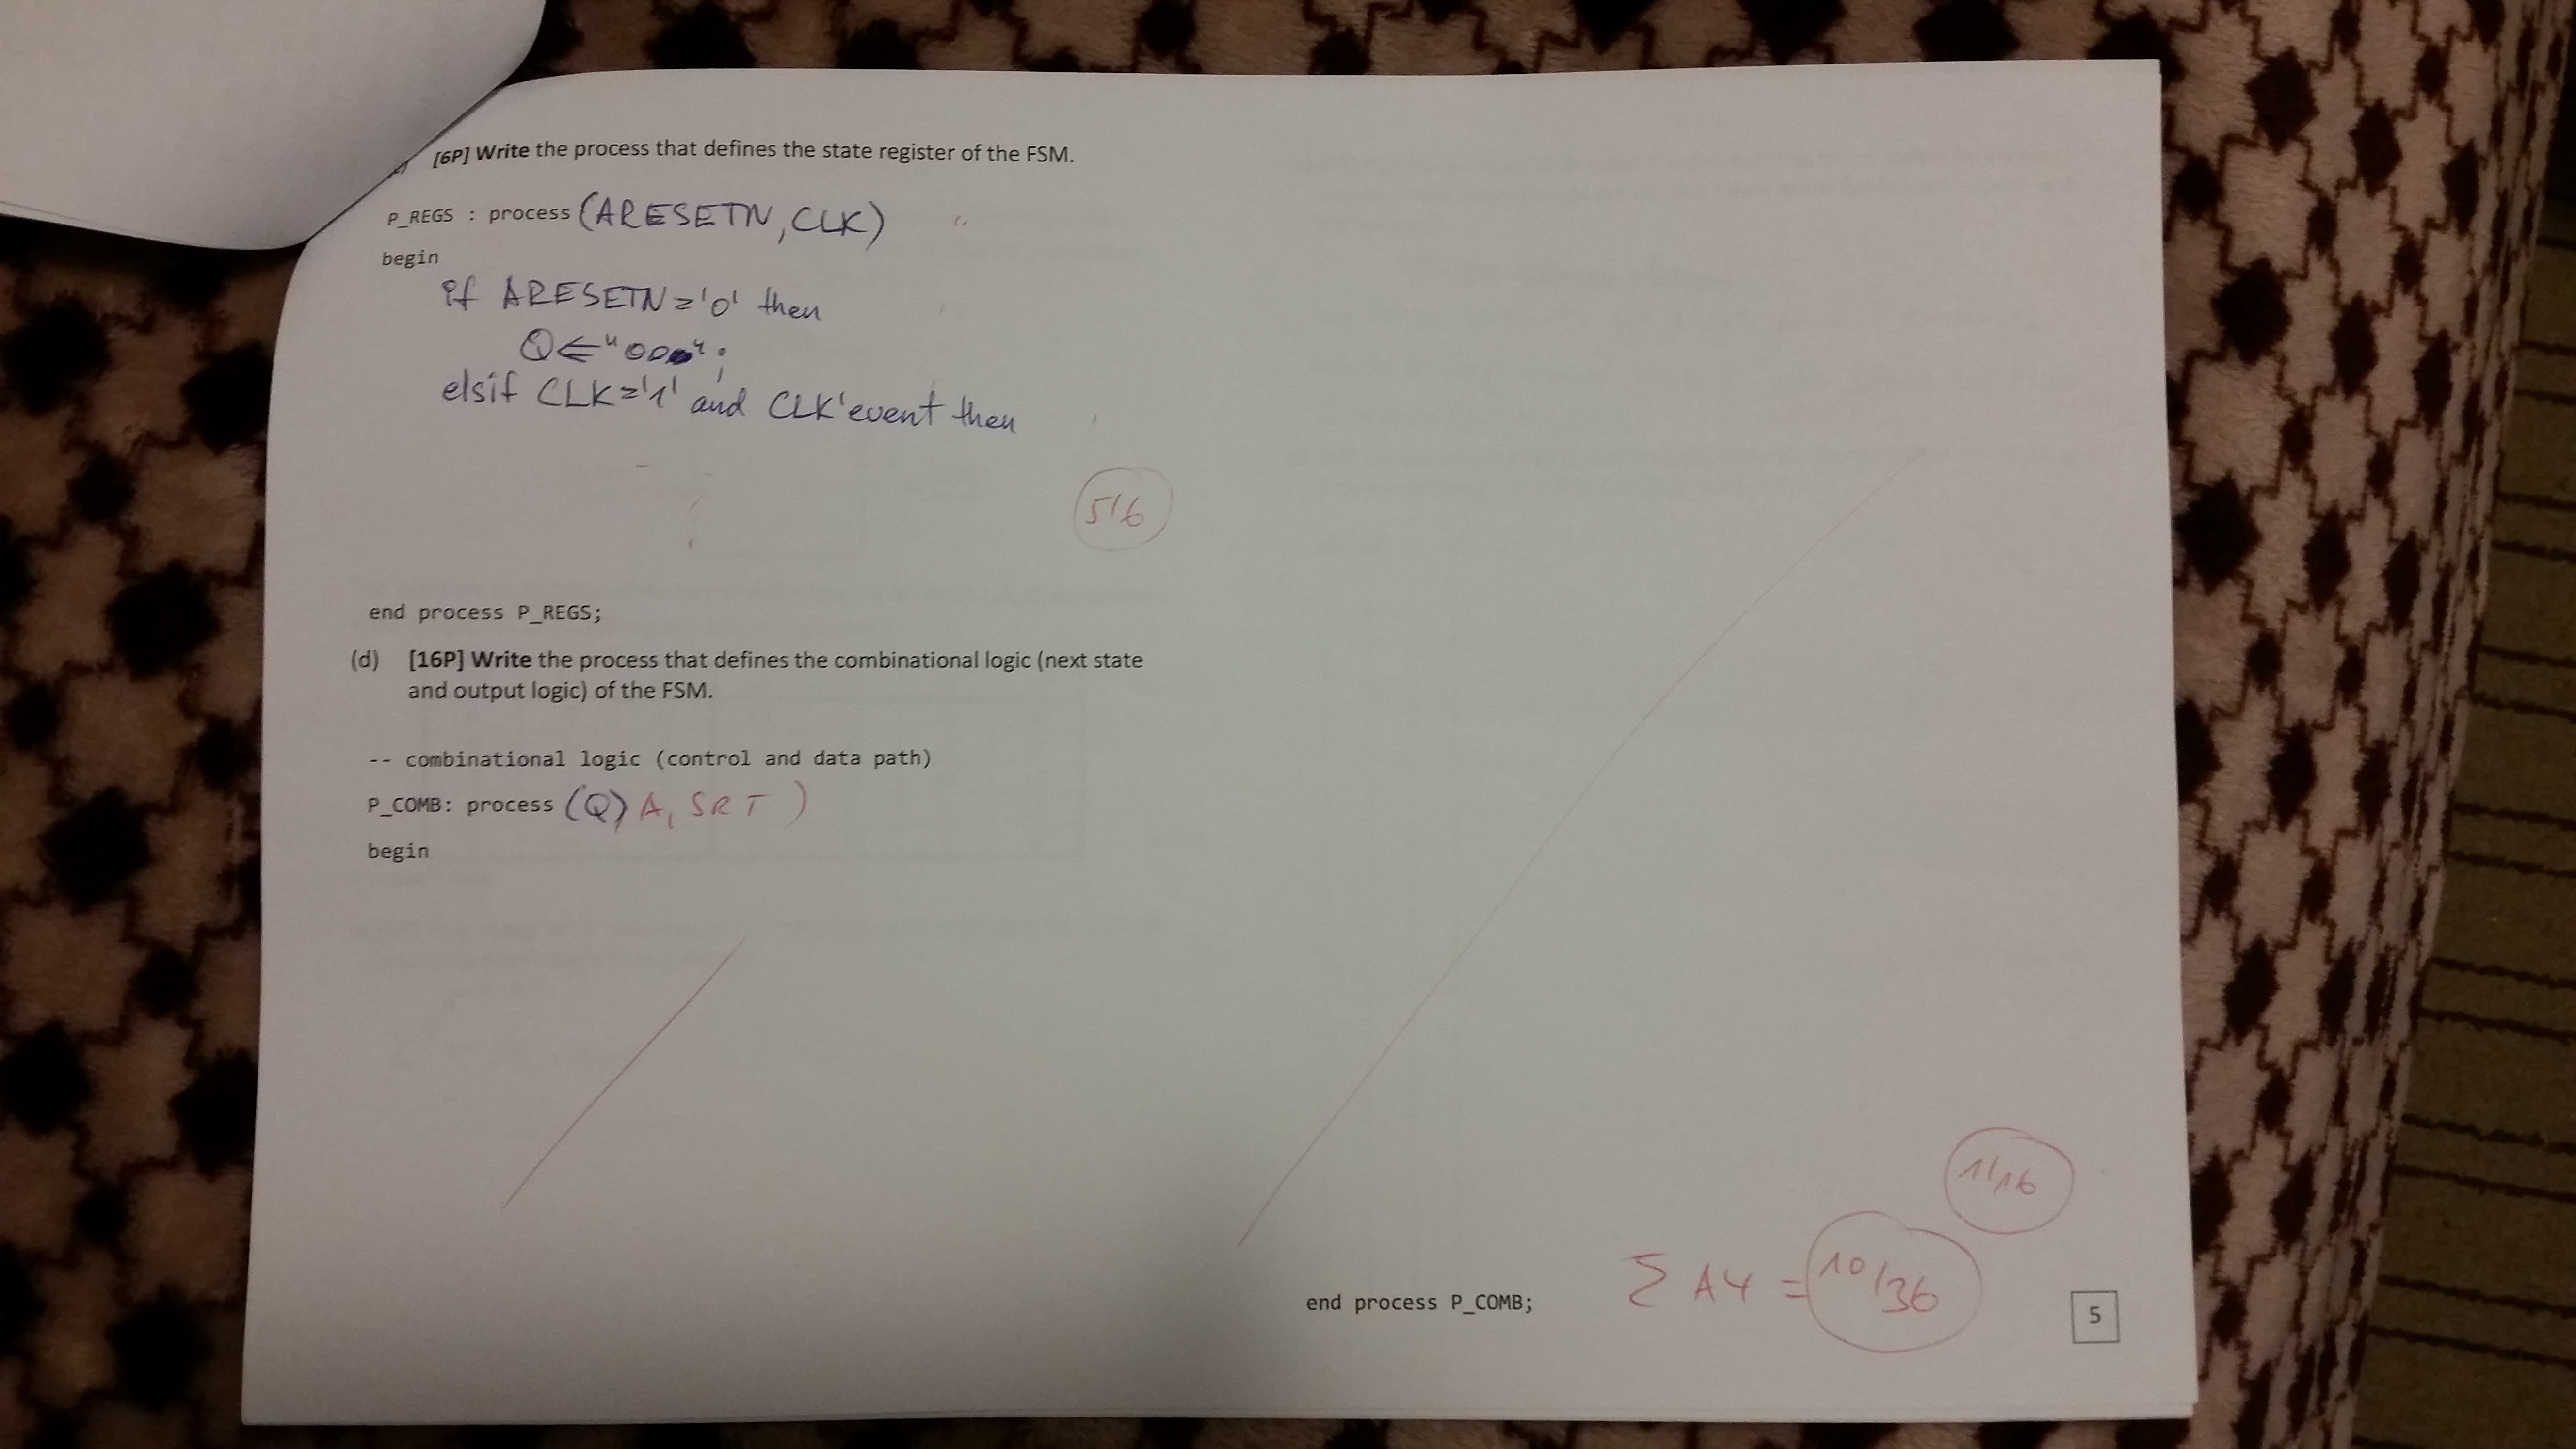 [6P] Write the process that defines the state register of the FSM.
P_REGS : process (ARESETN, CLK)
begin
if ARESETN='0' then
Q <= "000";
elsif CLK='1' and CLK'event then
5/6
end process P_REGS;
(d) [16P] Write the process that defines the combinational logic (next state
and output logic) of the FSM.
-- combinational logic (control and data path)
P_COMB: process (Q) A, SRT )
begin
1/16
end process P_COMB;
Σ A4 = 10/36
5